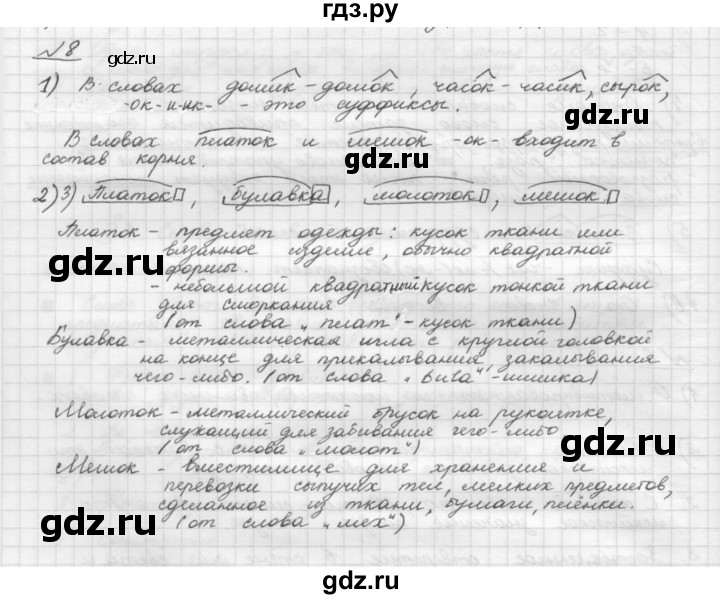 гдз.ру
№8
gdz.ru
1) В словах домик - домок, часок - часик, сырок,
-ок- и -ик- - это суффиксы.
gdz.ru
В словах платок и мешок -ок- входит в
состав корня.
2) 3) Платок, булавка, молоток, мешок
Платок - предмет одежды: кусок ткани или
вязанное изделие, обычно квадратной
формы.
gdz.ru
gdz.ru
- небольшой квадратный кусок тонкой ткани
для сморкания
(от слова „плат" - кусок ткани)
Булавка - металлическая игла с круглой головкой
на конце для прикалывания, закалывания
чего-либо. (от слова „bula" - шишка)
Молоток - металлический брусок на рукоятке,
служащий для забивания чего-либо
gdz.ru
(от слова „молот")
Мешок - вместилище для хранения и
перевозки сыпучих тел, мелких предметов,
сделанное из ткани, бумаги, плёнки.
gdz.ru
(от слова „мех")
gdz.ru